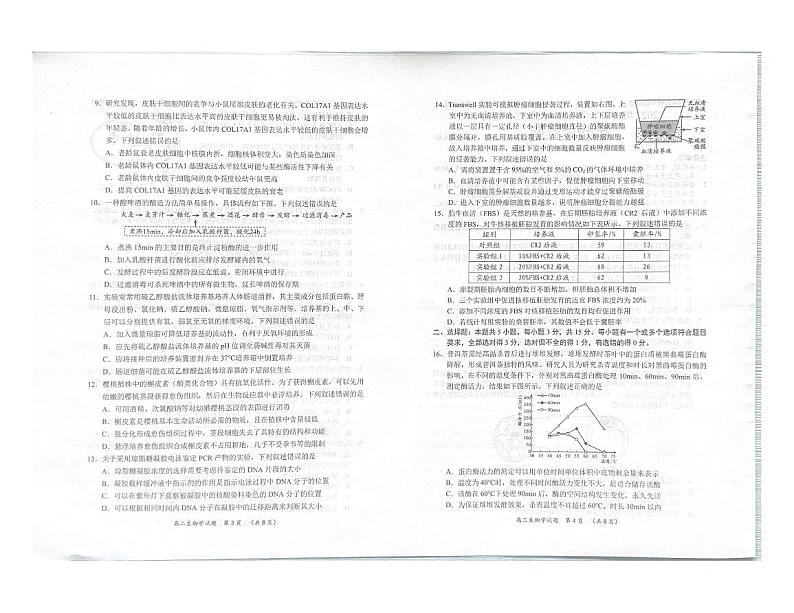 9．研究发现，皮肤干细胞间的竞争与小鼠尾部皮肤的老化有关。COL17A1 基因表达水
平较低的皮肤干细胞比表达水平高的皮肤干细胞更易被淘汰，这有利于维持皮肤的
年轻态。随着年龄的增长，小鼠体内 COL17A1 基因表达水平较低的皮肤干细胞会增
多。下列叙述错误的是
A．老龄鼠衰老皮肤细胞中核膜内折，细胞核体积变大，染色质染色加深
B．老龄鼠体内 COL17A1 基因表达水平较低可能与某些酶活性下降有关
C．老龄鼠体内皮肤干细胞间的竞争强度较幼年鼠更高
D．提高 COL17A1 基因的表达水平可能延缓皮肤的衰老
10．一种酸啤酒的酿造操作简单易操作，具体流程如下图。下列叙述错误的是
大麦→麦芽汁→糖化→蒸煮→过滤→酵母→发酵→过滤消毒→产品
煮沸15min，冷却后加入乳酸杆菌，酸化24h
A．煮沸 15min 的主要目的是终止淀粉酶的进一步作用
B．加入乳酸杆菌进行酸化前应排尽发酵罐内的氧气
C．发酵过程中的后发酵阶段应在低温、密闭环境中进行
D．过滤消毒可杀死啤酒中的所有微生物，延长啤酒的保存期
11．实验室常用硫乙醇酸盐流体培养基培养人体肠道菌群，其主要成分包括蛋白胨、酵
母浸出粉、氯化钠、硫乙醇酸钠、微量琼脂、氧气指示剂等。培养基的上、中、下
层可以分别提供有氧、弱氧至无氧的梯度环境。下列叙述错误的是
A．加入微量琼脂可降低培养基的流动性，有利于厌氧环境的形成
B．应先将硫乙醇酸盐流体培养基的 pH 值调至弱碱性再对其灭菌
C．应将接种后的培养装置密封并在 37℃培养箱中倒置培养
D．肠道细菌可能能在硫乙醇酸盐流体培养基的下层部位生长
12．樱桃植株中的槲皮素（酚类化合物）具有抗氧化活性。为了获得槲皮素，可以先用
幼嫩的樱桃茎段获得愈伤组织，然后在生物反应器中悬浮培养。下列叙述错误的是
A．可用酒精、次氯酸钠等对幼嫩樱桃茎段的表面进行消毒
B．槲皮素是樱桃基本生命活动所必需的物质，且在植株中含量较低
C．脱分化形成愈伤组织过程中，茎段细胞失去了其特有的结构和功能
D．悬浮培养愈伤组织合成槲皮素不占用耕地，几乎不受季节等的限制
13．关于采用琼脂糖凝胶电泳鉴定 PCR 产物的实验，下列叙述错误的是
A．琼脂糖凝胶浓度的选择需要考虑待鉴定的 DNA 片段的大小
B．凝胶载样缓冲液中指示剂的作用是指示电泳过程中 DNA 分子的位置
C．可以在紫外灯下观察被凝胶中的核酸染料染色的 DNA 分子的位置
D．可以根据相同的 DNA 分子在凝胶中的迁移距离来判断其大小
高二生物学试题 第 3 页 （共 8 页）
14．Transwell 实验可模拟肿瘤细胞侵袭过程，装置如右图。上
室中为无血清培养液，下室中为血清培养液，上下层培养
液以一层具有一定孔径（小于肿瘤细胞直径）的聚碳酸酯
膜分隔开，膜孔用基质胶覆盖。在上室中加入肿瘤细胞，
放入培养箱中培养，通过下室中的细胞数量反映肿瘤细胞
的侵袭能力。下列叙述错误的是
无血清
培养液
上室
肿瘤细胞
下室
聚碳酸
酯膜
血清培养液
A．需将装置置于含 95%的空气和 5%的 CO₂的气体环境中培养
B．血清培养液中可能含有某些因子，促使肿瘤细胞向下室移动
C．肿瘤细胞需分解基质胶并通过变形运动才能穿过聚碳酸酯膜
D．进入下室的肿瘤细胞数量越多，说明肿瘤细胞分裂能力越强
15．胎牛血清（FBS）是天然的培养基，在后期胚胎培养液（CR2 后液）中添加不同浓
度的 FBS，对牛核移植胚胎发育的影响情况如下表所示。下列叙述错误的是
组别 培养液 卵裂率/% 囊胚率/%
对照组 CR2 后液 59 13
实验组 1 10%FBS+CR2 后液 62 13
实验组 2 20%FBS+CR2 后液 68 26
实验组 3 30%FBS+CR2 后液 62 9
A．卵裂期胚胎内细胞的数目不断增加，但胚胎总体积不增加
B．三个实验组中促进核移植胚胎发育的适宜 FBS 浓度约为 20%
C．添加不同浓度的 FBS 对核移植胚胎的发育均有促进作用
D．若统计每组实验的桑葚胚率，其数值不会低于囊胚率
二、选择题：本题共 5 小题，每小题 3 分，共 15 分。每小题有一个或多个选项符合题目
要求，全部选对得 3 分，选对但不全的得 1 分，有选错的得 0 分。
16．普洱茶需经高温杀青后进行堆堆发酵。堆堆发酵时茶叶中的蛋白质被黑曲霉蛋白酶
降解，形成普洱茶独特的风味。研究人员为研究杀青温度和时长对黑曲霉蛋白酶的
影响，在不同的温度条件下，分别对黑曲霉蛋白酶处理 10min、60min、90min 后，
测定酶活力，结果如图所示。下列叙述正确的是
10min
60min
90min
30 35 40 45 50 55 60 65 70 75
温度/℃
A．蛋白酶活力的测定可以用单位时间单位体积中底物剩余量来表示
B．温度为 40℃时，处理不同时间时酶活力变化不大，最适合储存该酶
C．该酶在 60℃下处理 90min 后，酶的空间结构发生变化，永久失活
D．为保证堆堆发酵效果，杀青温度不宜超过 60℃，时长不宜超过 10min
高二生物学试题 第 4 页 （共 8 页）